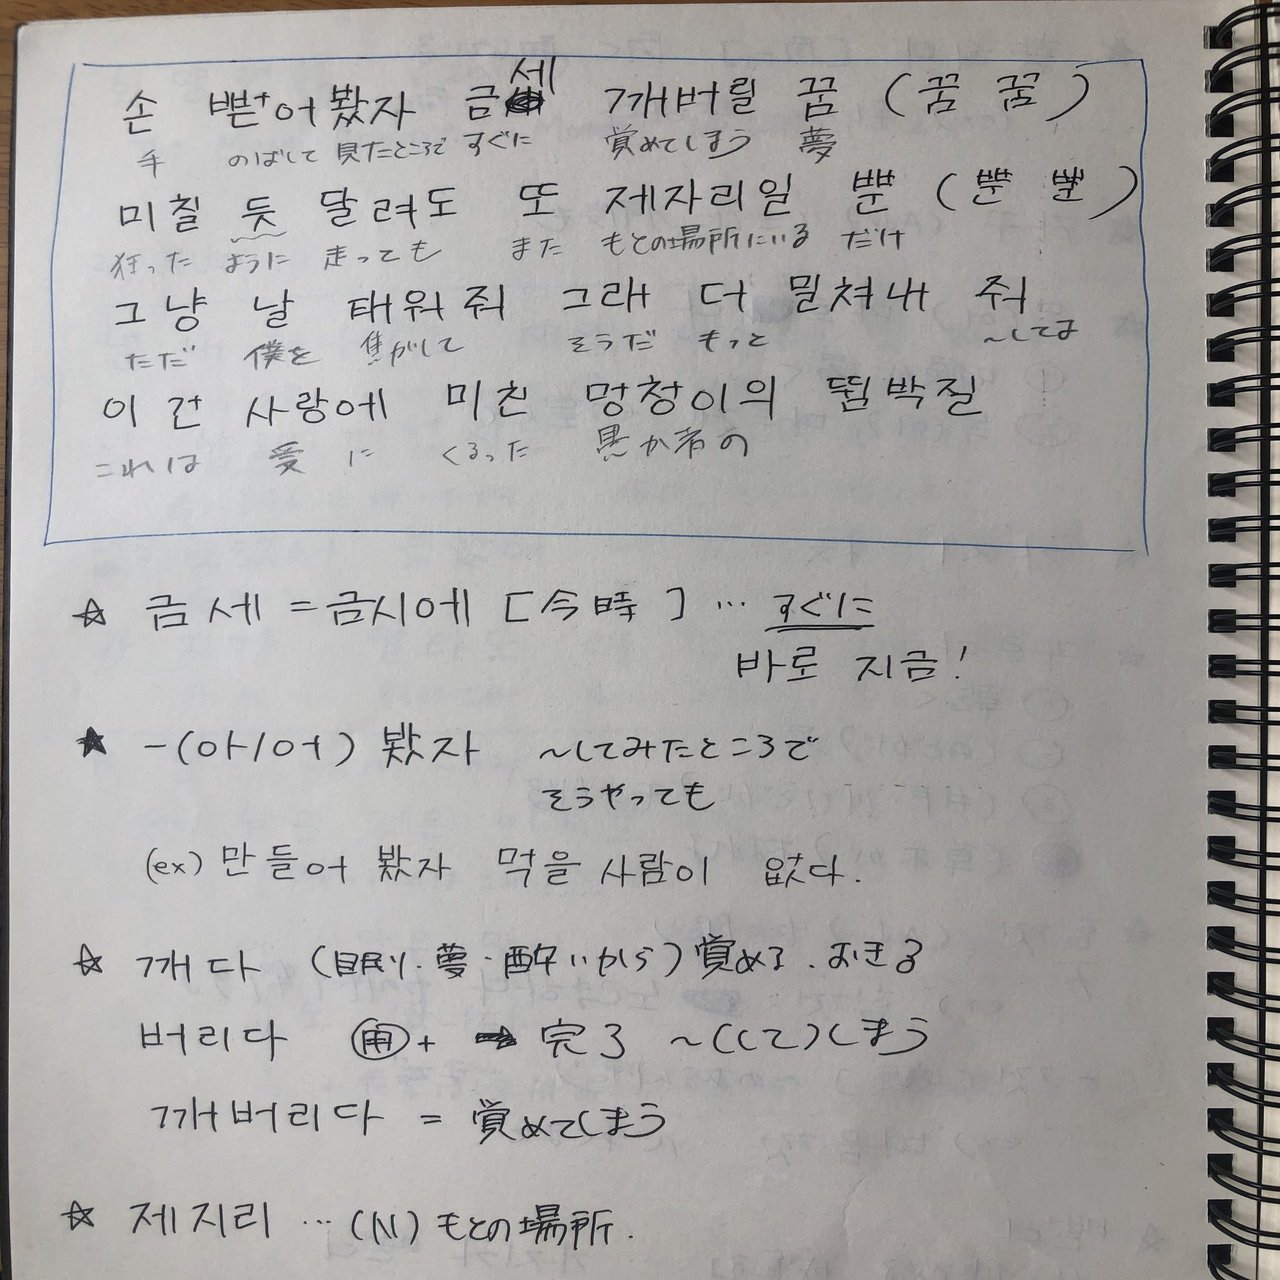 손 뻗어 봤자 금세 깨버릴 꿈 (꿈 꿈)
手 のばして 見たところで すぐに 覚めてしまう 夢
미칠 듯 달려도 또 제자리일 뿐 (뿐 뿐)
狂った ように 走っても また もとの場所にいる だけ
그냥 날 태워줘 그래 더 밀쳐내 줘
ただ 僕を 焦がして そうだ もっと 〜してよ
이건 사랑에 미친 멍청이의 뜀박질
これは 愛 に くるった 愚か者の
☆ 금세 = 금시에 [今時] … すぐに
바로 지금!
★ -(아/어) 봤자 〜してみたところで
そうやっても
(ex) 만들어 봤자 먹을 사람이 없다.
☆ 깨다 (眠り・夢・酔いから) 覚める. おきる
버리다 用+ → 完了 〜(して)しまう
깨버리다 = 覚めてしまう
☆ 제지리 … (N) もとの場所.